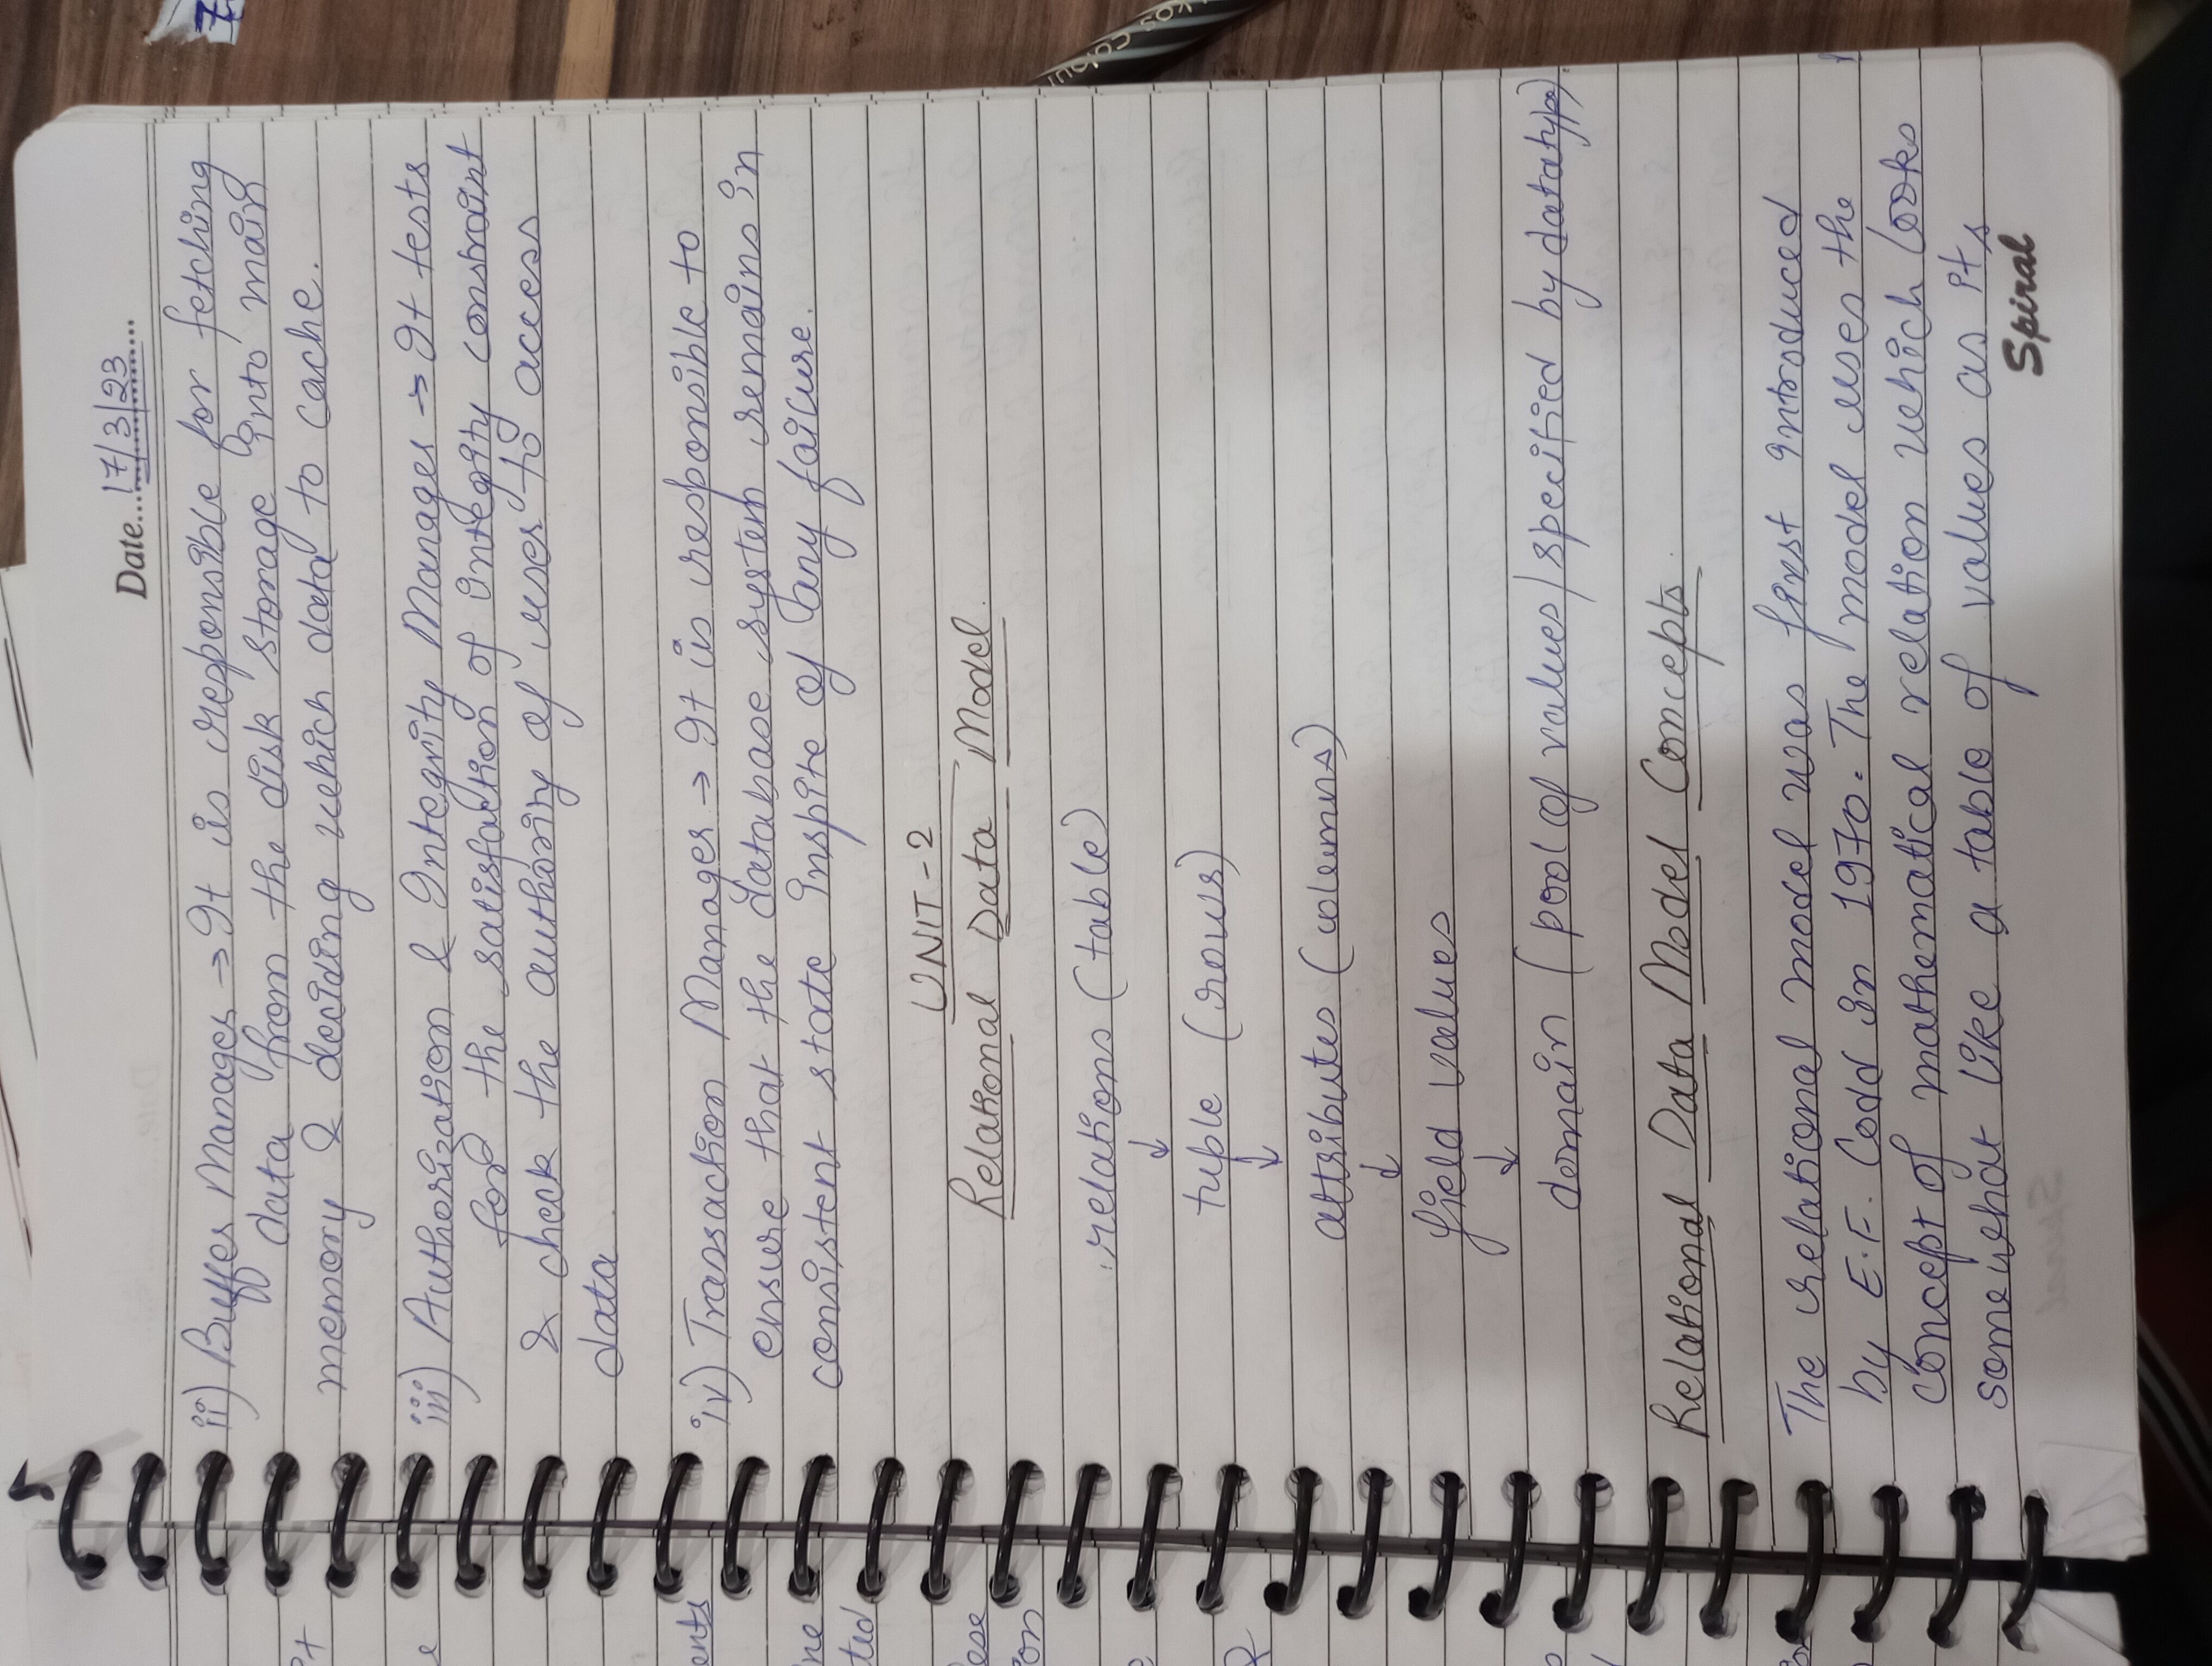 Date...17/3/23...
ii) Buffer Manager → It is responsible for fetching
data from the disk storage into main
memory & deciding which data to cache.
iii) Authorization & Integrity Manager → It tests
for the satisfaction of integrity constraint
& check the authority of user to access
data
iv) Transaction Manager → It is responsible to
ensure that the database system remains in
consistent state inspite of any failure.
UNIT-2
Relational Data Model.
relations (table)
↓
tuple (rows)
↓
attributes (columns)
↓
field values
↓
domain (pool of values/specified by datatype).
Relational Data Model Concepts.
The relational model was first introduced
by E.F. Codd in 1970. The model uses the
concept of mathematical relation which looks
somewhat like a table of values as its
Spiral
ents
ne
ted
ese
ion